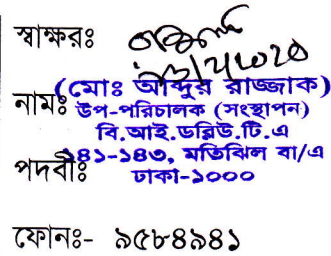 স্বাক্ষরঃ
(মোঃ আব্দুর রাজ্জাক)
নামঃ উপ-পরিচালক (সংস্থাপন)
বি.আই.ডব্লিউ.টি.এ
পদবীঃ ১৪১-১৪৩, মতিঝিল বা/এ
ঢাকা-১০০০
ফোনঃ- ৯৫৮৪৯৪১